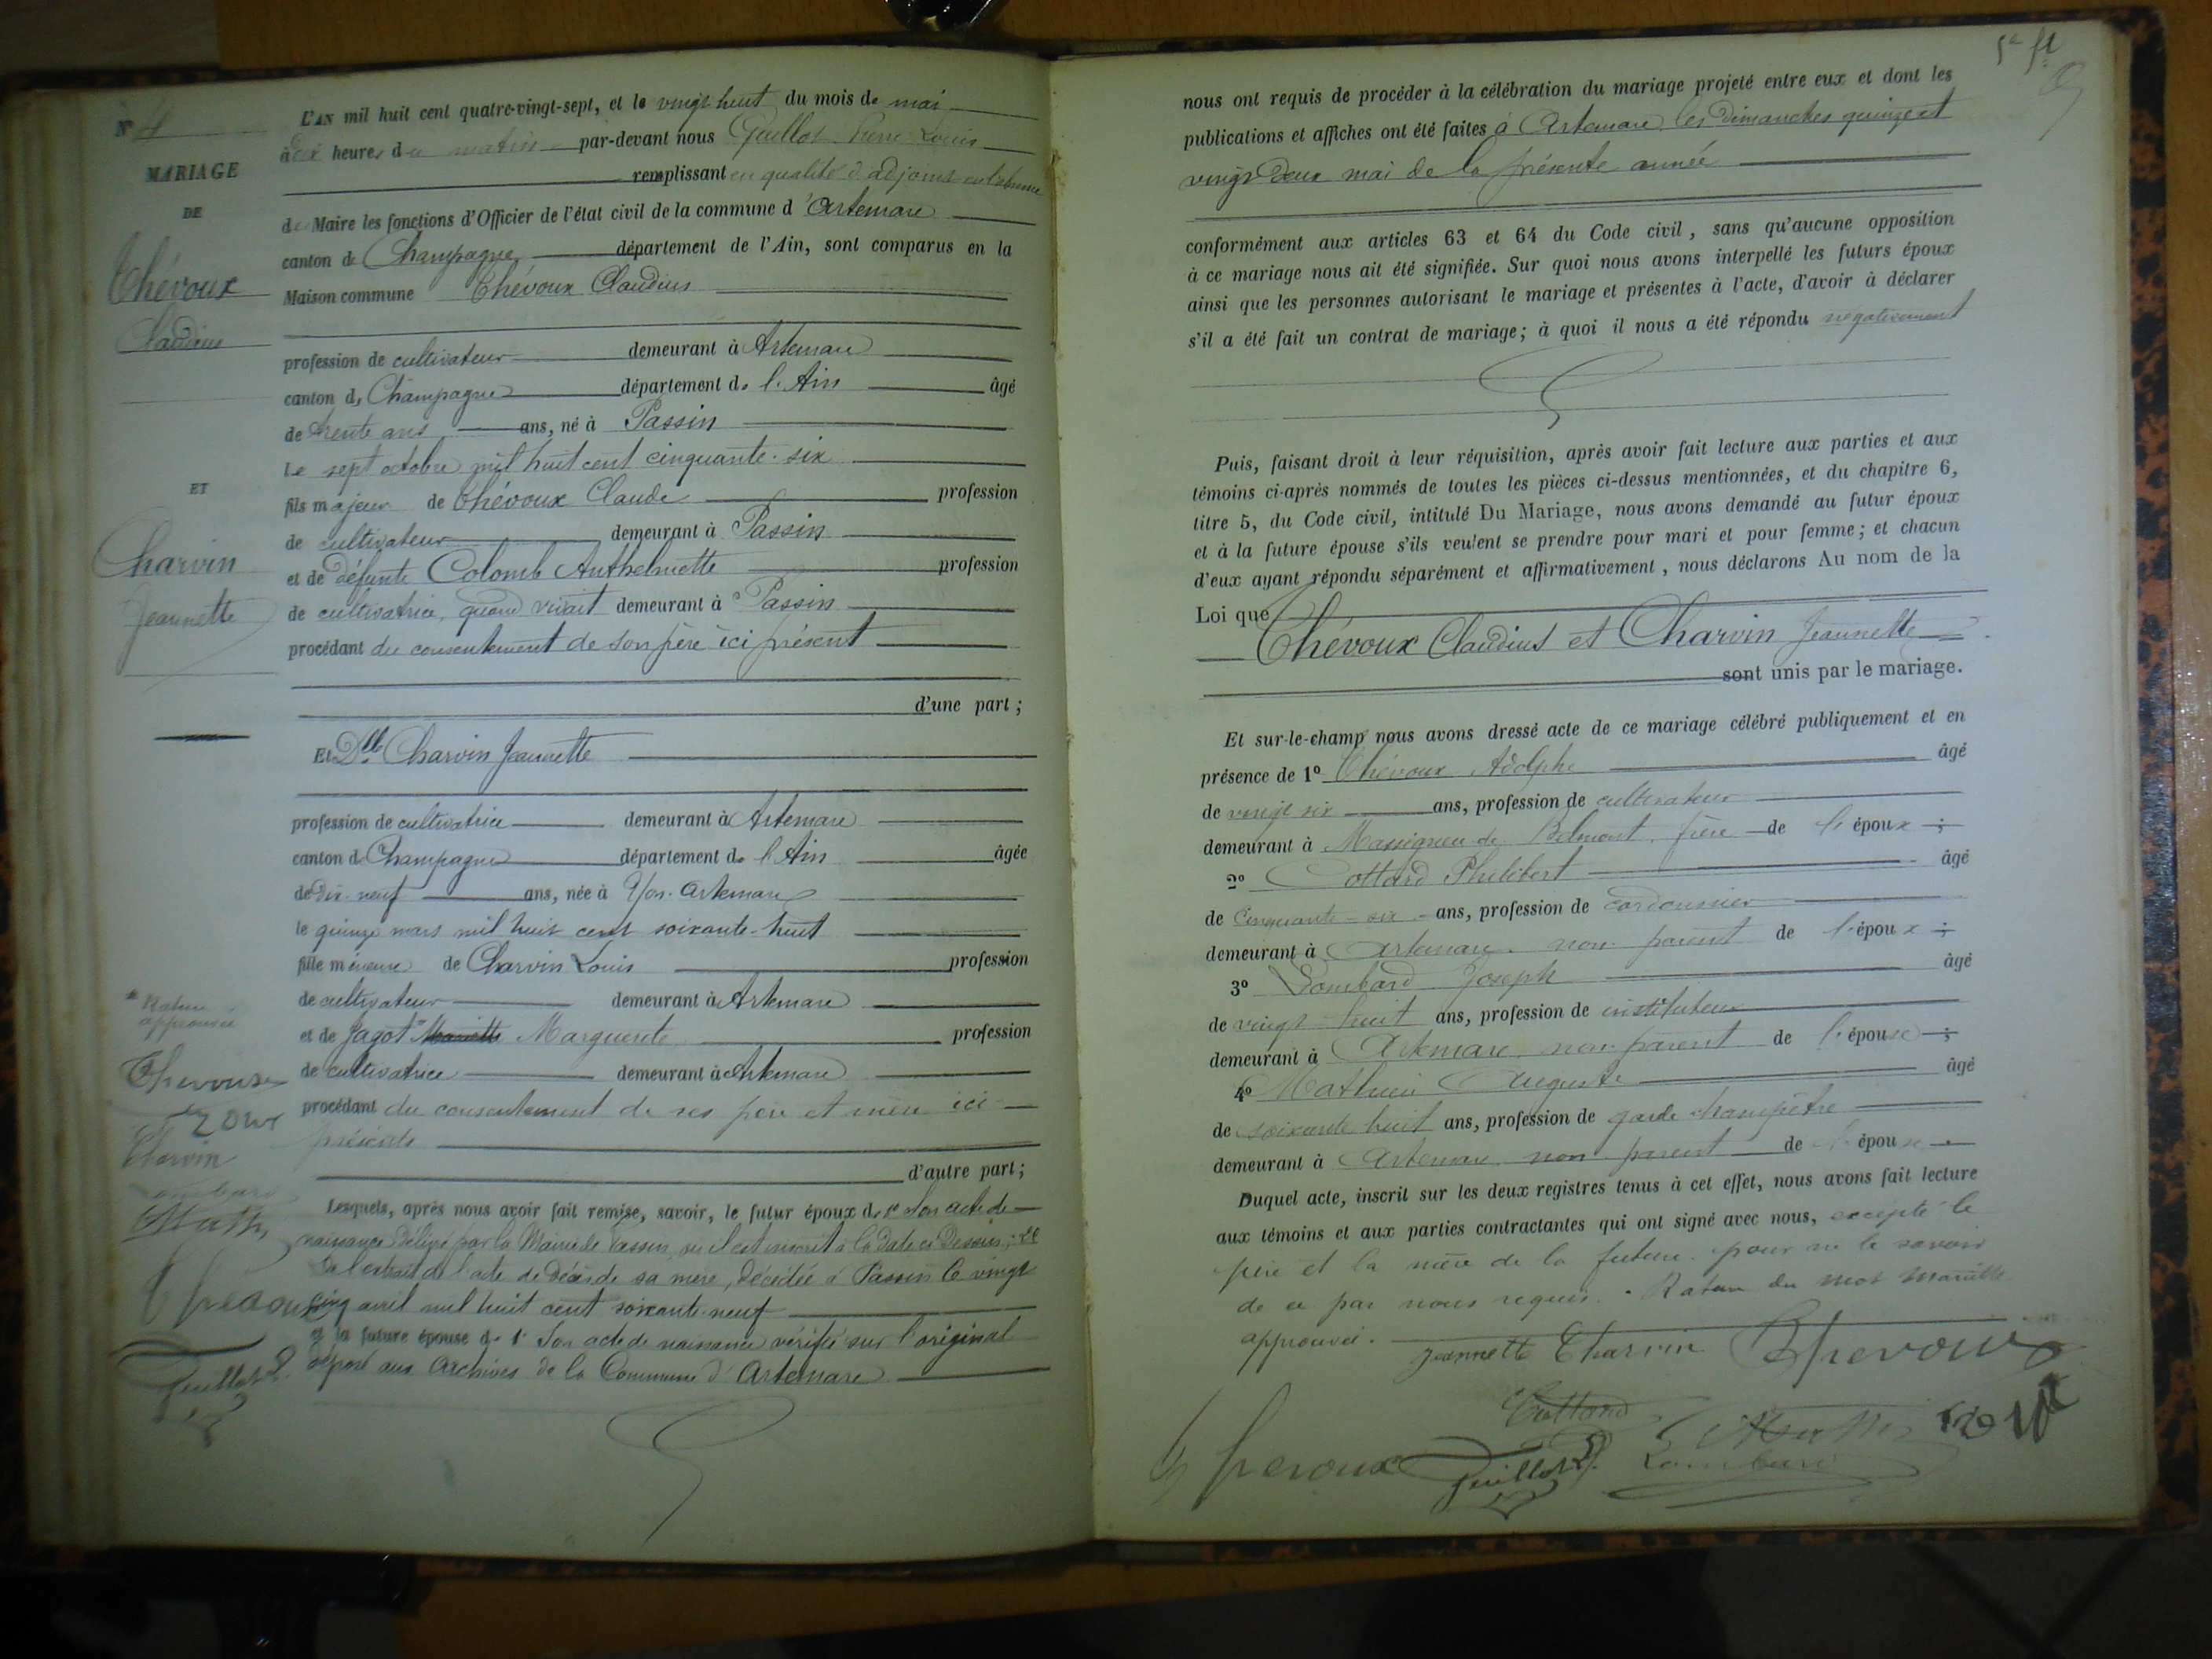 N° 4
MARIAGE
DE
Chévoux
Claudius
ET
Charvin
Jeannette
L'AN mil huit cent quatre-vingt-sept, et le vingt huit du mois de mai
à dix heures du matin par-devant nous Guillot Pierre Louis
remplissant en qualité d'adjoint
de Maire les fonctions d'Officier de l'état civil de la commune d'Artemare
canton de Champagne département de l'Ain, sont comparus en la
Maison commune Chévoux Claudius
profession de cultivateur demeurant à Artemare
canton de Champagne département de l'Ain âgé
de trente ans ans, né à Passin
Le sept octobre mil huit cent cinquante-six
fils majeur de Chévoux Claude profession
de cultivateur demeurant à Passin
et de défunte Colomb Anthelmette profession
de cultivatrice, quand vivait demeurant à Passin
procédant du consentement de son père ici présent
d'une part ;
Et Dlle Charvin Jeannette
profession de cultivatrice demeurant à Artemare
canton de Champagne département de l'Ain âgée
de dix-neuf ans, née à Yon-Artemare
le quinze mars mil huit cent soixante-huit
fille mineure de Charvin Louis profession
de cultivateur demeurant à Artemare
et de Jagot Mariette Marguerite profession
de cultivatrice demeurant à Artemare
procédant du consentement de ses père et mère ici
présents
d'autre part ;
Lesquels, après nous avoir fait remise, savoir, le futur époux de 1° son acte de
naissance délivré par la Mairie de Passin, où il est inscrit à la date ci-dessus ; 2°
de l'extrait de l'acte de décès de sa mère, décédée à Passin le vingt
cinq avril mil huit cent soixante-neuf
et la future épouse de 1° son acte de naissance vérifié sur l'original
déposé aux Archives de la Commune d'Artemare
* Rature
approuvée
Chevoux
Charvin
Lombard
Guillot
5e ft
nous ont requis de procéder à la célébration du mariage projeté entre eux et dont les
publications et affiches ont été faites à Artemare les dimanches quinze et
vingt-deux mai de la présente année
conformément aux articles 63 et 64 du Code civil, sans qu'aucune opposition
à ce mariage nous ait été signifiée. Sur quoi nous avons interpellé les futurs époux
ainsi que les personnes autorisant le mariage et présentes à l'acte, d'avoir à déclarer
s'il a été fait un contrat de mariage ; à quoi il nous a été répondu négativement
Puis, faisant droit à leur réquisition, après avoir fait lecture aux parties et aux
témoins ci-après nommés de toutes les pièces ci-dessus mentionnées, et du chapitre 6,
titre 5, du Code civil, intitulé Du Mariage, nous avons demandé au futur époux
et à la future épouse s'ils veulent se prendre pour mari et pour femme ; et chacun
d'eux ayant répondu séparément et affirmativement, nous déclarons Au nom de la
Loi que
Chévoux Claudius et Charvin Jeannette
sont unis par le mariage.
Et sur-le-champ nous avons dressé acte de ce mariage célébré publiquement et en
présence de 1° Chévoux Adolphe âgé
de vingt six ans, profession de cultivateur
demeurant à Massignieu de Belmont, frère de l'époux ;
2° Cottard Philibert âgé
de Cinquante-six ans, profession de cordonnier
demeurant à Artemare, non parent de l'époux ;
3° Lombard Joseph âgé
de vingt-huit ans, profession de instituteur
demeurant à Artemare, non parent de l'épouse ;
4° Mathieu Auguste âgé
de soixante huit ans, profession de garde champêtre
demeurant à Artemare, non parent de l'épouse
Duquel acte, inscrit sur les deux registres tenus à cet effet, nous avons fait lecture
aux témoins et aux parties contractantes qui ont signé avec nous, excepté le
père et la mère de la future pour ne le savoir
de ce par nous requis. Rature du mot mariette
approuvée.
Jeannette Charvin Chevoux
Cottard
Chevoux Guillot Lombard